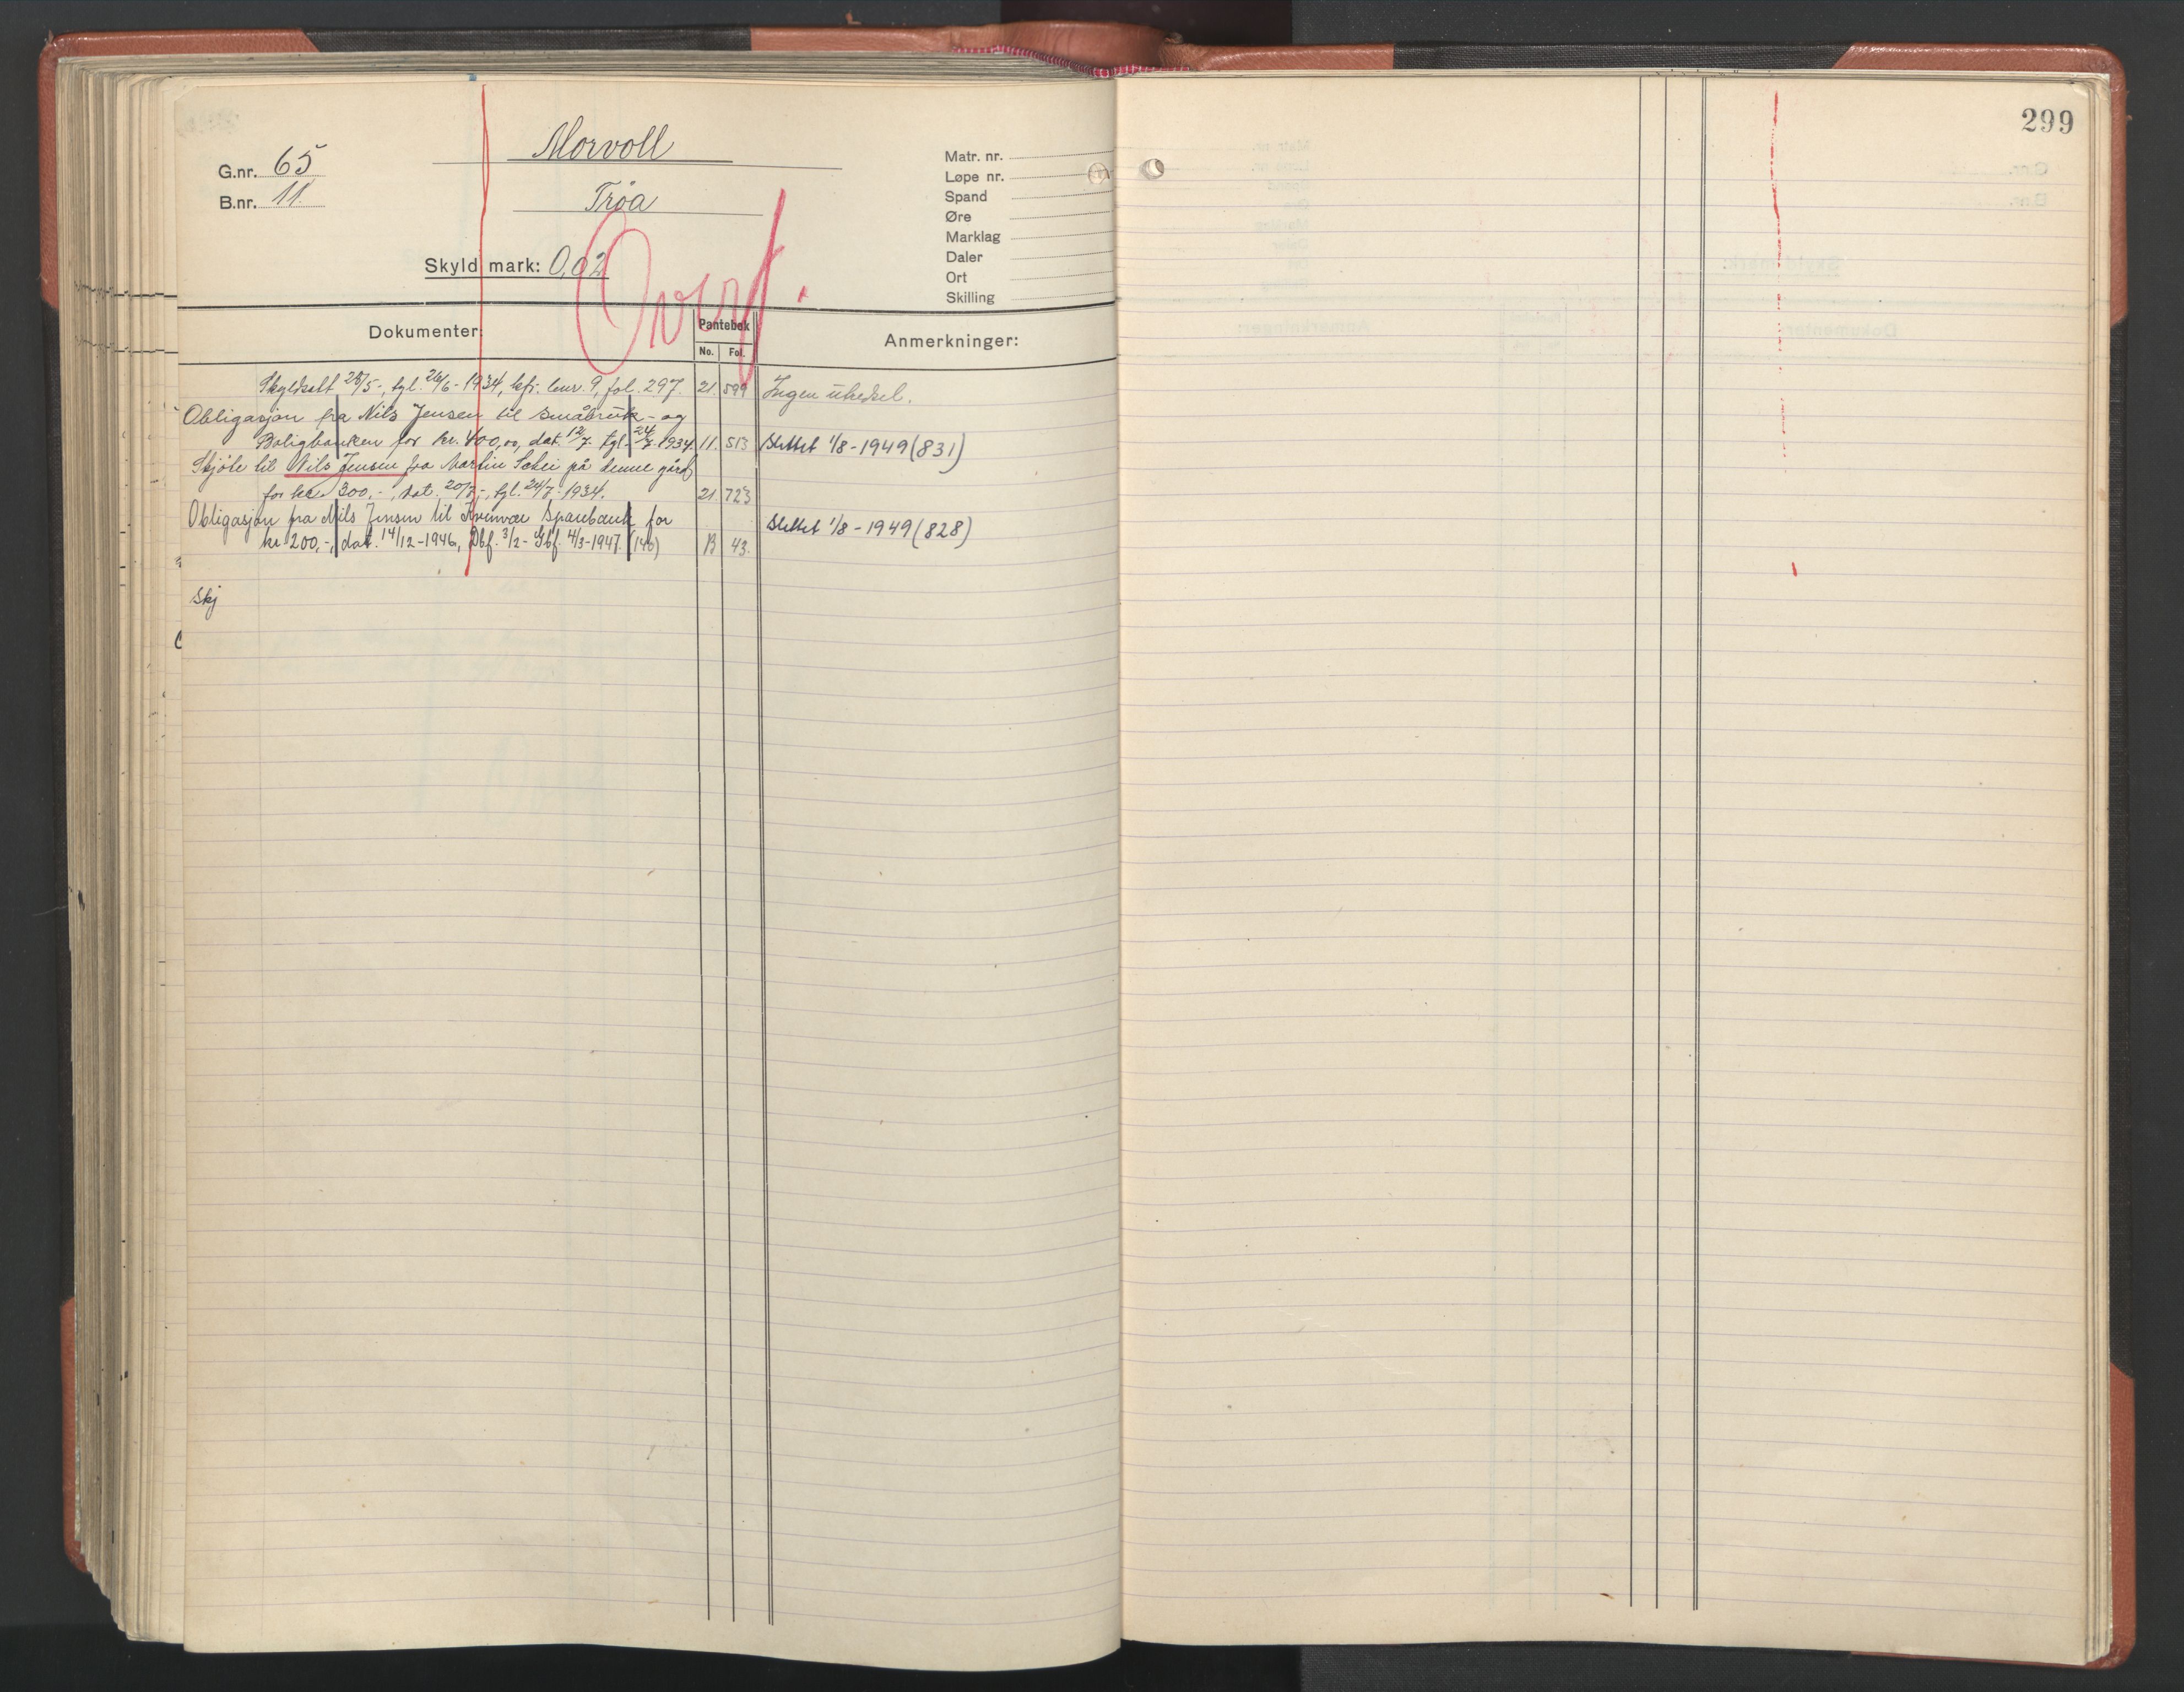 299
Morvoll
G.nr. 65
B.nr. 11.
Trøa
Skyld mark: 0,02
Overf.
Matr. nr.
Løpe nr.
Spand
Øre
Marklag
Daler
Ort
Skilling
Dokumenter: Pantebok Anmerkninger:
No. Fol.
Skyldsatt 28/5-, tgl. 26/6-1934, kfr. bnr. 9, fol. 297. 21. 599 Ingen utferdsel.
Obligasjon fra Nils Jensen til Småbruk- og
Boligbanken for kr. 400,00, dat. 12/7- tgl. 24/7-1934 11. 513 Slettet 1/8-1949 (831)
Skjøte til Nils Jensen fra Martin på denne gård
for kr. 300,-, dat. 20/7-, tgl. 24/7-1934. 21. 723
Obligasjon fra Nils Jensen til Kvenvær Sparebank for
kr 200,-, dat. 14/12-1946, Dbf. 3/2- Gbf. 4/3-1947. (146) B 43. Slettet 1/8-1949 (828)
Skj